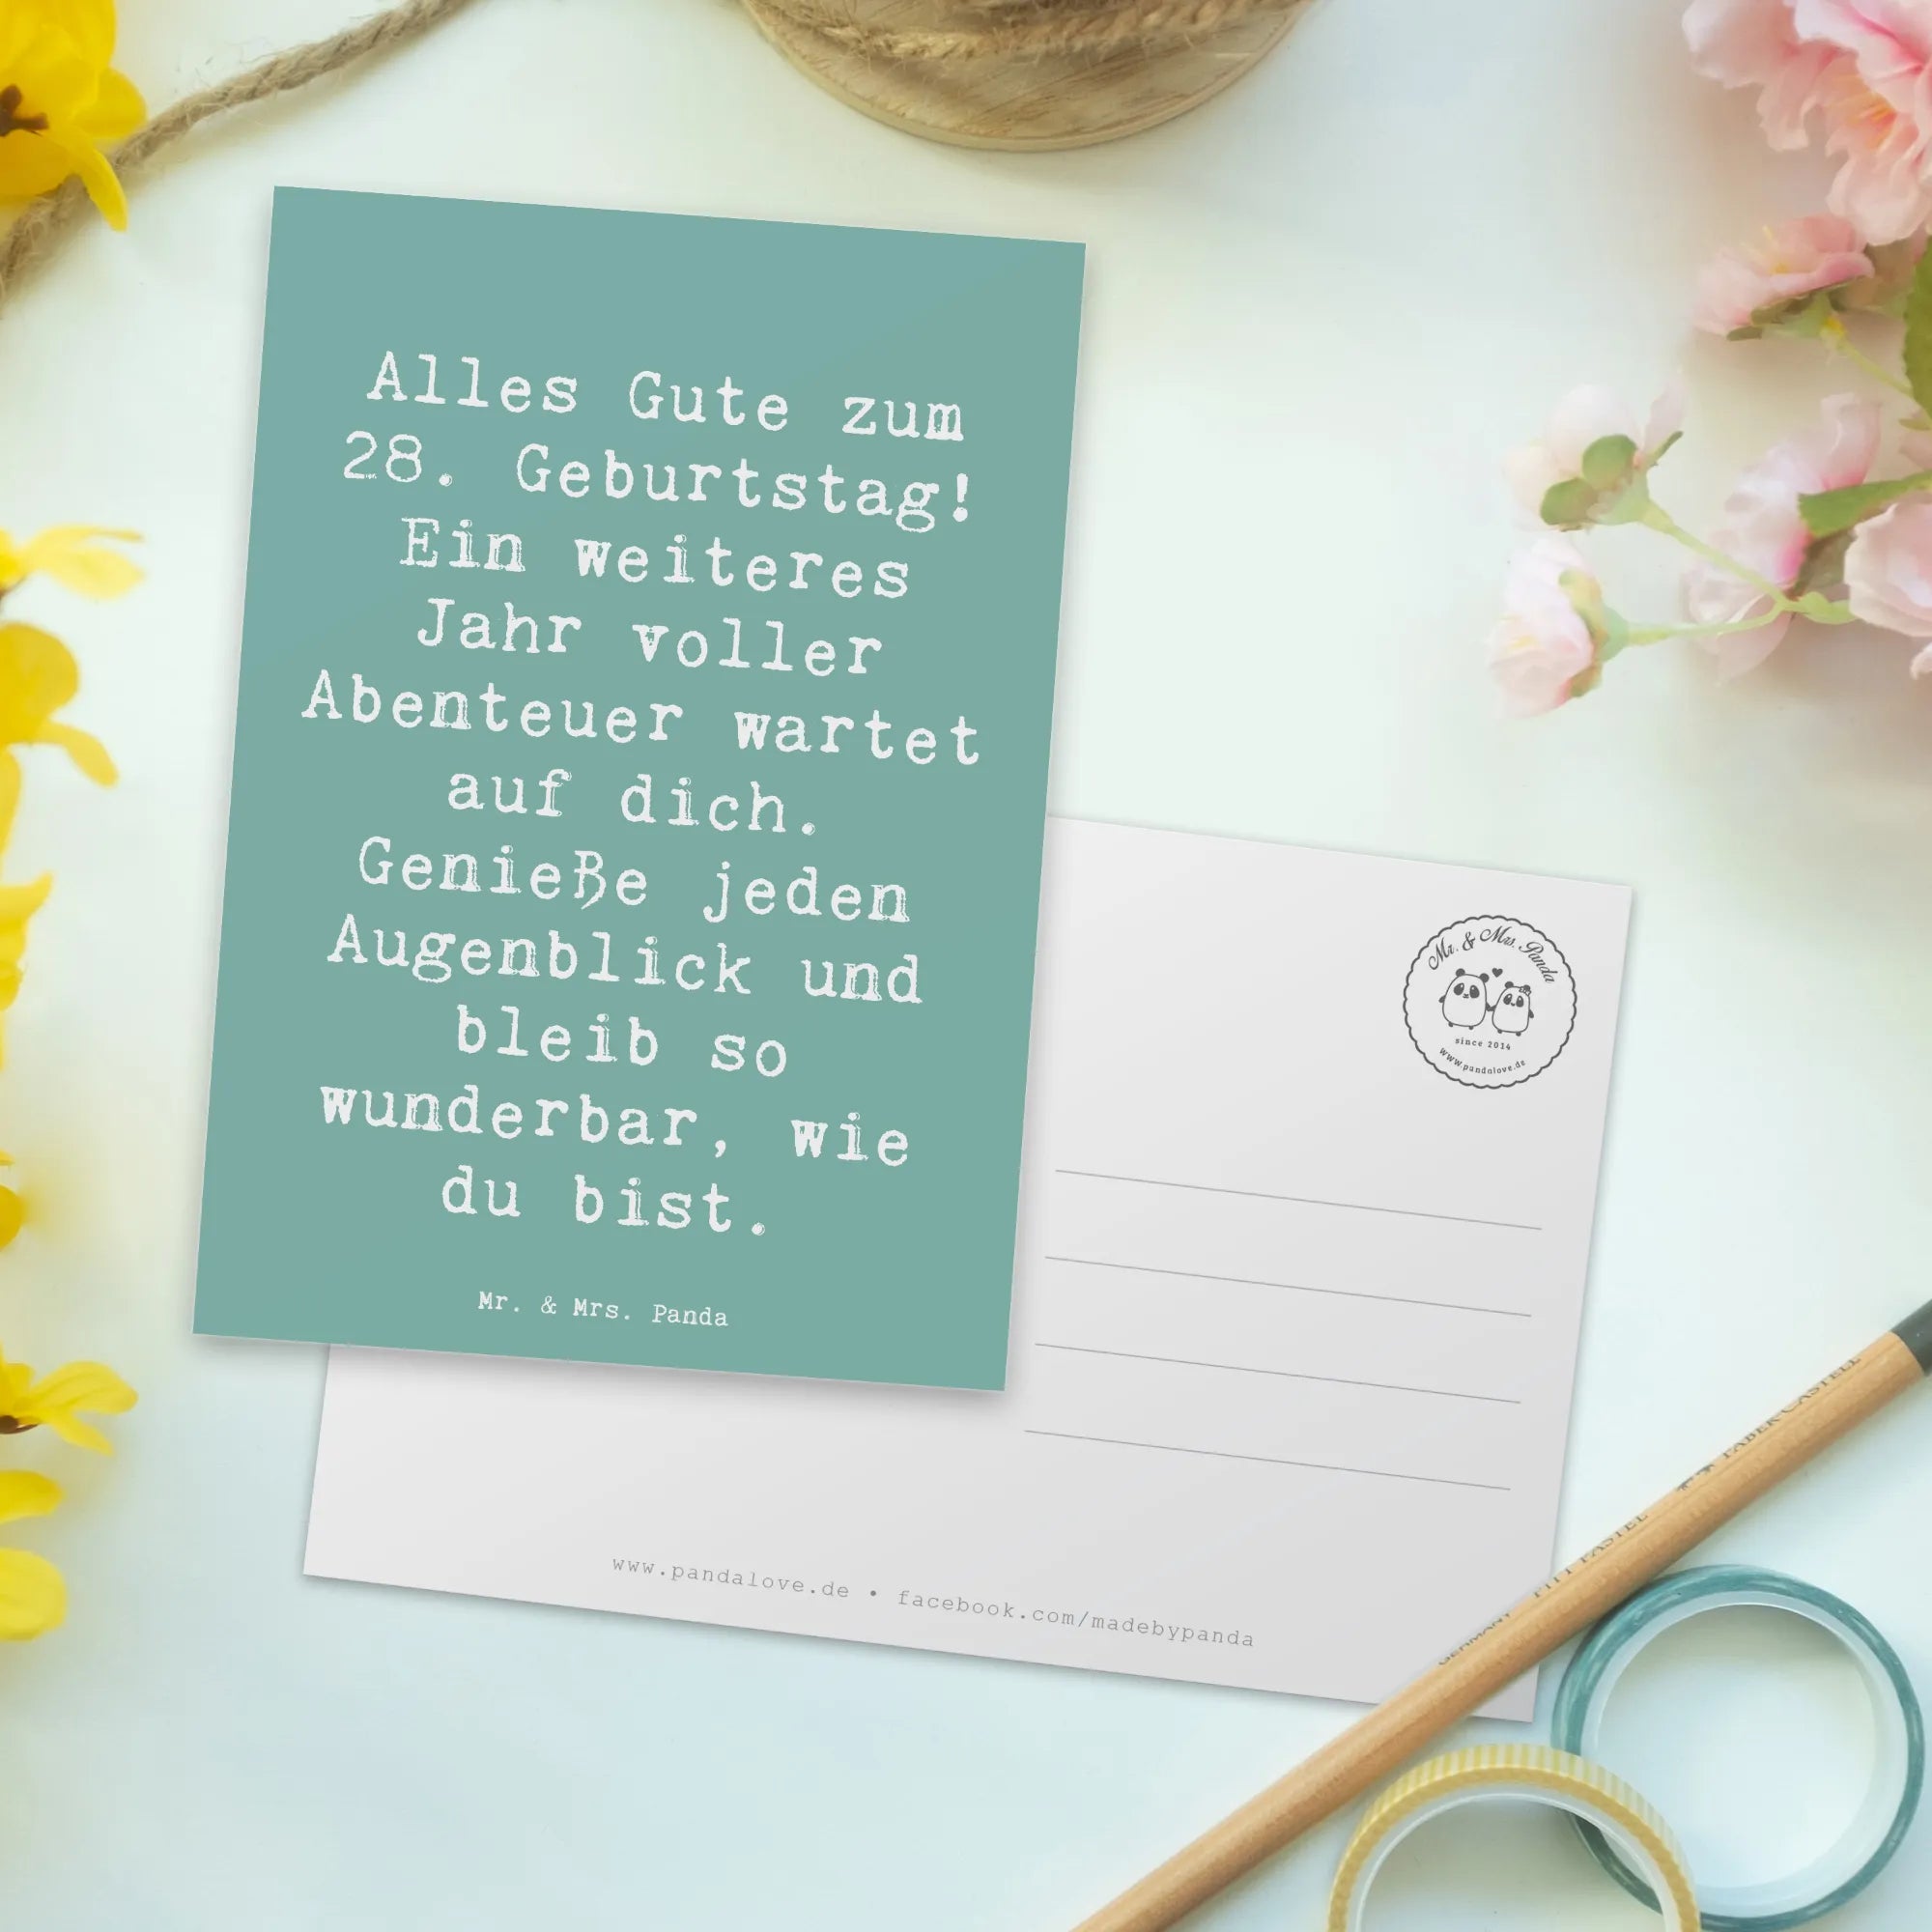 Alles Gute zum
28. Geburtstag!
Ein weiteres
Jahr voller
Abenteuer wartet
auf dich.
Genieße jeden
Augenblick und
bleib so
wunderbar, wie
du bist.
Mr. & Mrs. Panda
Mr. & Mrs. Panda
since 2014
www.pandalove.de
www.pandalove.de • facebook.com/madebypanda
GERMANY PITT PASTEL FABER-CASTELL